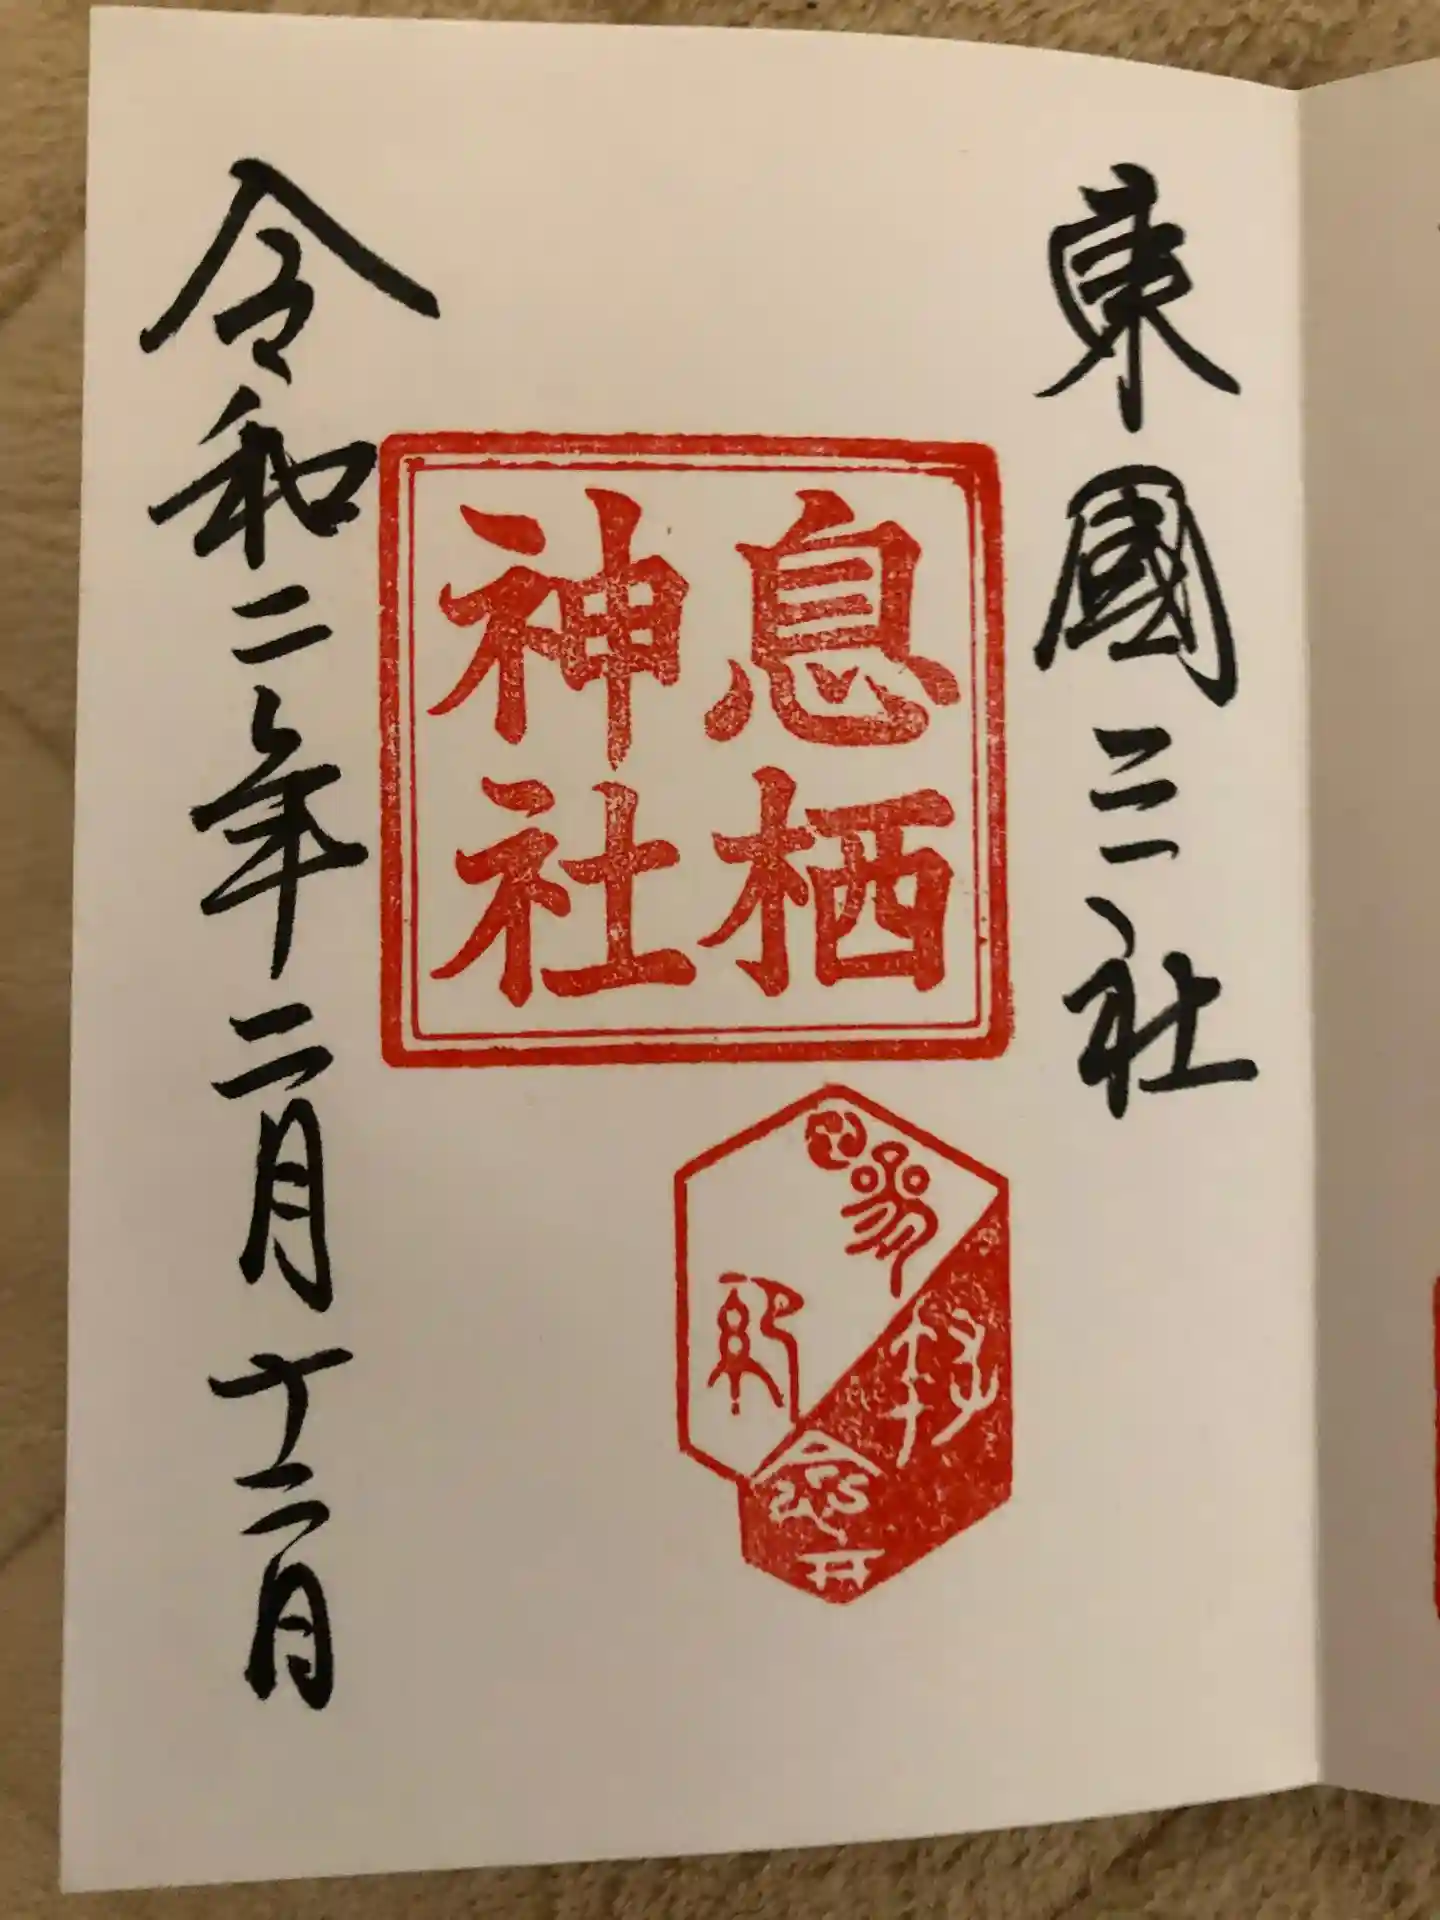 東國三社
息栖
神社
令和二年二月十二日